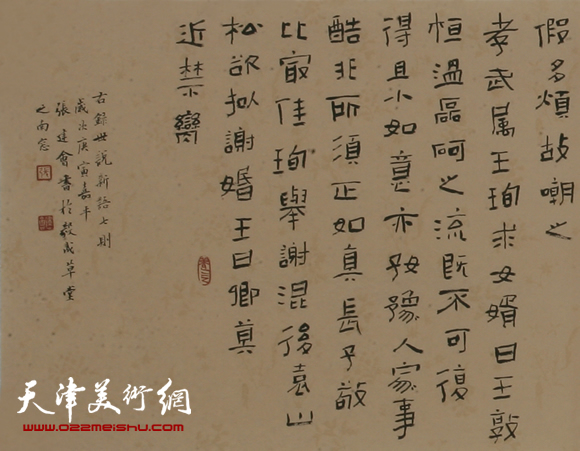 假多煩故嘲之
孝武属王珣求女婿曰王敦
桓温磊砢之流既不可復
得且小如意亦好豫人家事
酷非所須正如真長子敬
比最佳珣舉謝混後袁山
松欲拟謝婚王曰卿莫
近禁臠
古錄世說新語七則
歲次庚寅嘉平
張建會書於毅成草堂
之南窓
天津美術網
www.022meishu.com